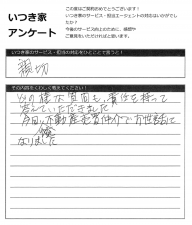 いつき家
アンケート
この度はご契約おめでとうございます！
いつき家のサービス・担当エージェントの対応はいかがでしたか？
今後のサービス向上のために、感想や
ご意見をいただければと思います。
いつき家のサービス・担当の対応をひとことで言うと！
親切
その内容をくわしく教えてください！
どの様な質問も、責任を持って
答えていただきました
今回、不動産売買仲介でお世話に
なりました